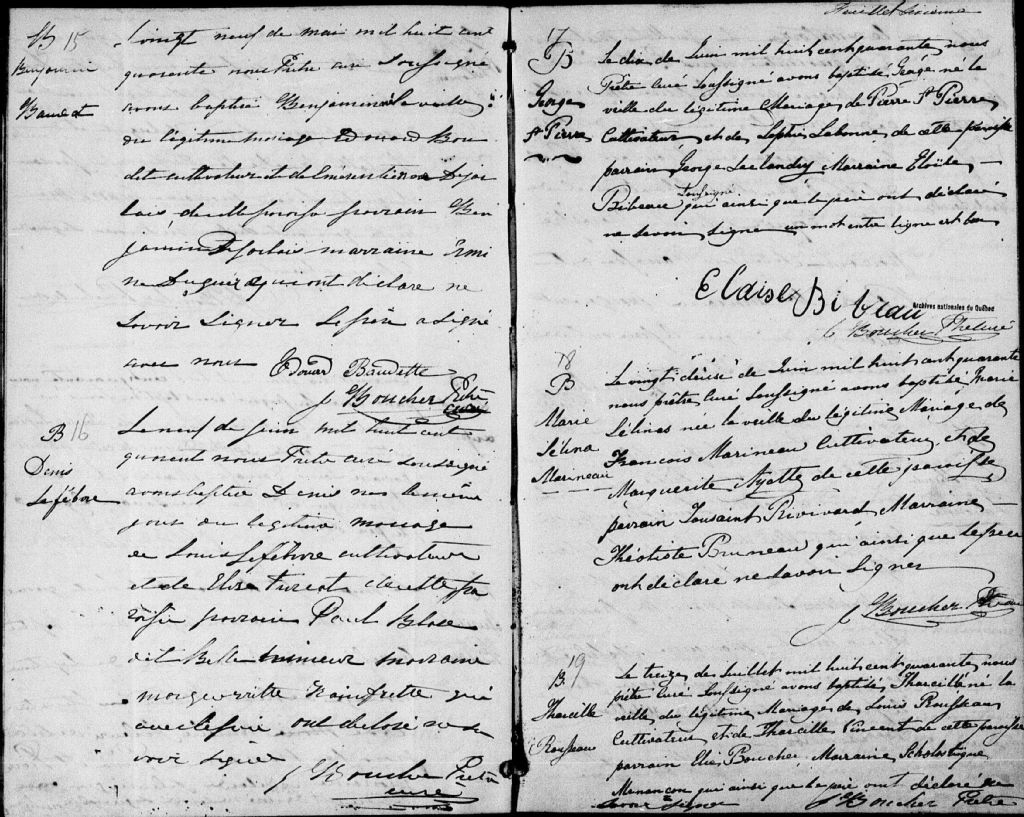 B 15
Benjamin
Baudet
vingt neuf de mai mil huit cent
quarante nous Prêtre curé soussigné
avons baptisé Benjamin né la veille
du légitime mariage Edouard Bau
det cultivateur et de
de cette paroisse parrain Ben
jamin marraine
ne qui ont déclaré ne
savoir signer le père a signé
avec nous Edouard Baudette
J Boucher Ptre
curé
B 16
Denis
Lefébvre
Le neuf de juin mil huit cent
quarent nous Prêtre curé soussigné
avons baptisé Denis né le même
jour du légitime mariage
de Louis Lefebvre cultivateur
et de Elise Turcot de cette pa
roisse parrain Paul
dit Bellehumeur marraine
margueritte qui
avec le père ont déclaré ne sa
voir signer
J Boucher Prêtre
curé
Feuillet sixième
17
B
George
St Pierre
Le dix de Juin mil huit cent quarante, nous
Prêtre curé soussigné avons baptisé, George né la
veille du légitime Mariage de Pierre St Pierre
Cultivateur et de Sophie Labonne, de cette paroisse
parrain George Leclandry Marraine Eloïse
Bibeau soussigné qui ainsi que le père ont déclaré
ne savoir signer un mot entre ligne est bon
Elaise Bibeau
Archives nationales du Québec
J Boucher Ptre curé
18
B
Marie
Sélina
Marineau
Le vingt de Juin mil huit cent quarante
nous prêtre curé soussigné avons baptisé Marie
Sélinas née la veille du légitime Mariage de
François Marineau Cultivateur et de
Marguerite Ayotte de cette paroisse
parrain Tousaint Rivard Marraine
Théotiste Bruneau qui ainsi que le père
ont déclaré ne savoir signer
J Boucher Ptre
19
B
Tharcille
Rousseau
Le treize de Juillet mil huit cent quarante, nous
prêtre curé soussigné avons baptisé, Tharcille né la
veille du légitime Mariage de Louis Rousseau
Cultivateur et de Tharcille Vincent de cette paroisse
parrain Elie Boucher Marraine Scholastique
Menançon qui ainsi que le père ont déclaré ne
savoir signer J Boucher Prêtre